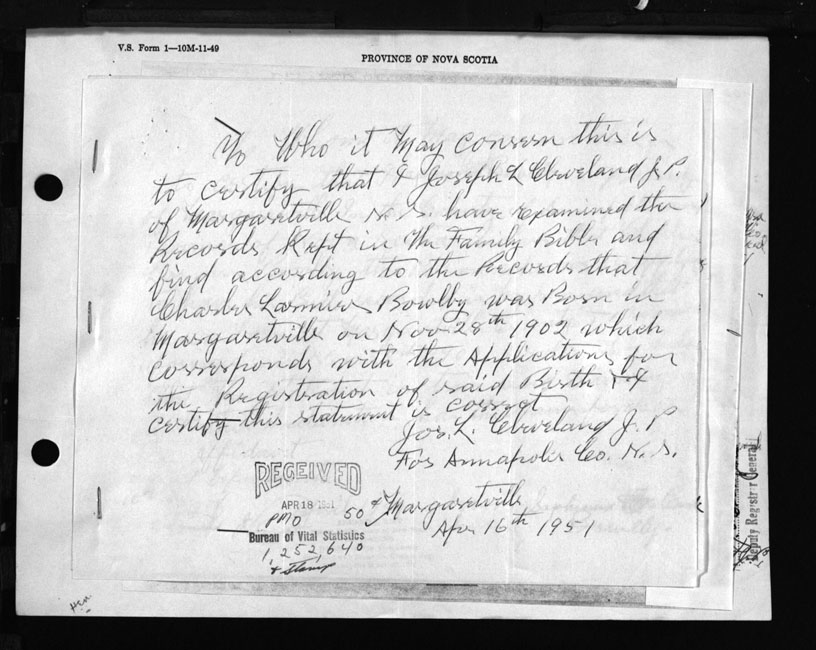 V.S. Form 1—10M-11-49
PROVINCE OF NOVA SCOTIA
To Who it May Concern this is
to certify that I Joseph L Cleveland J.P.
of Margaretville N.S. have examined the
Records Kept in The Family Bible and
find according to the Records that
Charles Bowlby was Born in
Margaretville on Nov 28th 1902 which
corresponds with the Applications for
the Registration of said Birth + I
certify this statement is correct
Jos. L. Cleveland J.P
For Annapolis Co. N.S.
Margaretville
Apr 16th 1951
RECEIVED
APR 18 1951
PMO 50
Bureau of Vital Statistics
1,252,640
& Stamp
Deputy Registrar General